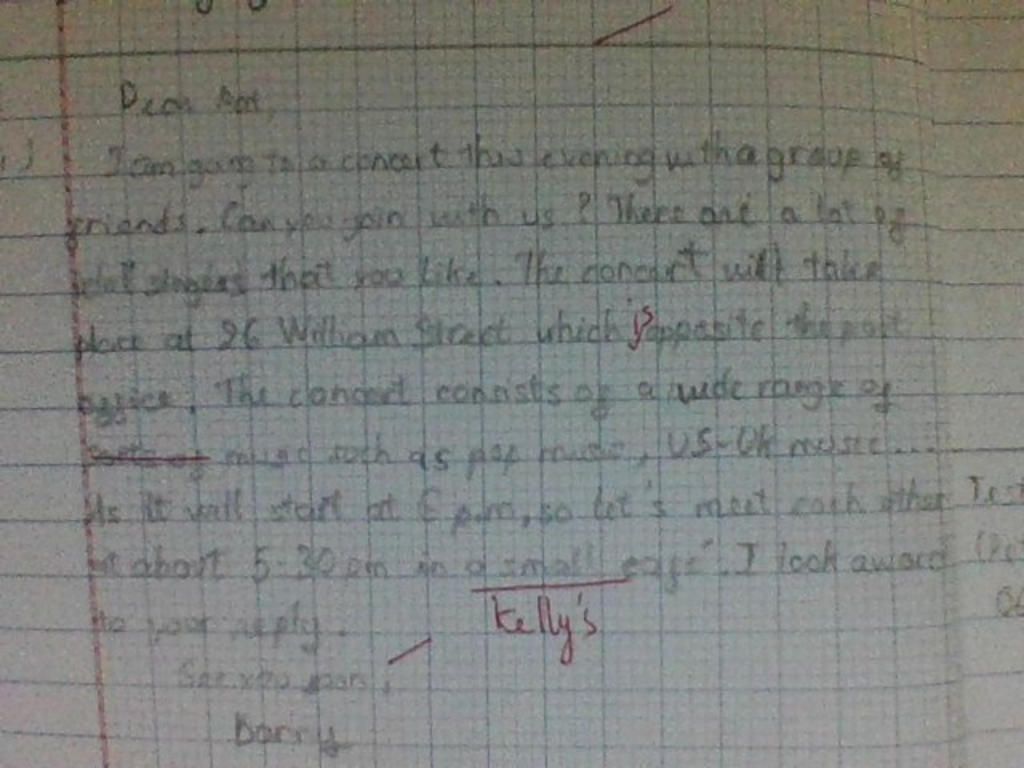 Dear
I am going to a concert this evening with a group of
friends. Can you join with us? There are a lot of
singers that you like. The concert will take
place at 26 William Street which is opposite the post
office. The concert consists of a wide range of
music such as pop music, US-UK music...
As it will start at 6 p.m, so let's meet each other
at about 5-30 pm in a small cafe. I look award
Kelly's
to your reply.
See you soon,
Barry
Test